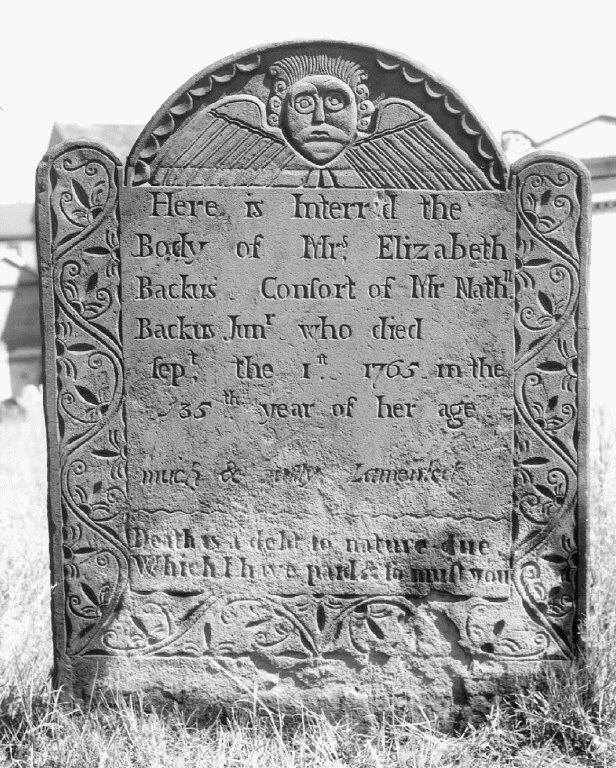 Here is Interr'd the
Body of Mrs. Elizabeth
Backus Consort of Mr Nathn
Backus Junr. who died
ſept. the 1st 1765 in the
35th year of her age
much & Lamented
Death is a debt to nature due
Which I have paid & ſo muſt you